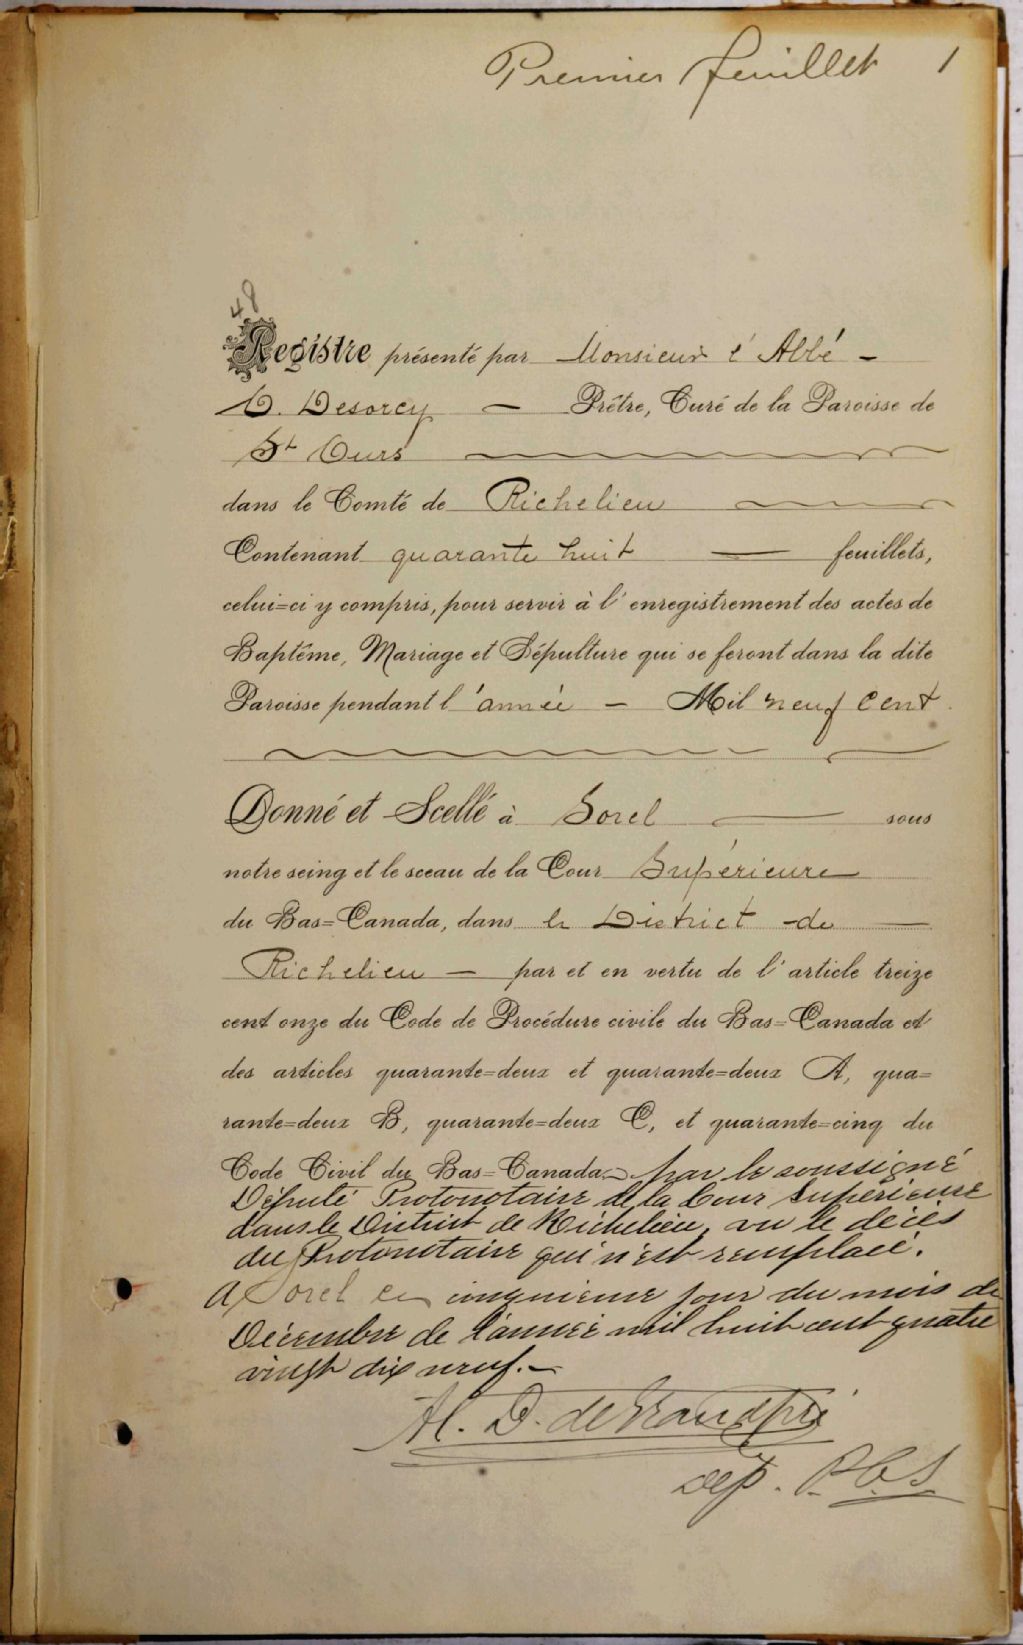 Premier feuillet 1
48
Registre présenté par Monsieur l'Abbé -
D. Desorcy - Prêtre, Curé de la Paroisse de
St Ours
dans le Comté de Richelieu
Contenant quarante huit - feuillets,
celui=ci y compris, pour servir à l'enregistrement des actes de
Baptême, Mariage et Sépulture qui se feront dans la dite
Paroisse pendant l'année - Mil neuf cent
Donné et Scellé à Sorel - sous
notre seing et le sceau de la Cour Supérieure
du Bas=Canada, dans le District de -
Richelieu - par et en vertu de l'article treize
cent onze du Code de Procédure civile du Bas=Canada et
des articles quarante=deux et quarante=deux A, qua=
rante=deux B, quarante=deux C, et quarante=cinq du
Code Civil du Bas=Canada - par le soussigné
Député Protonotaire de la Cour Supérieure
dans le District de Richelieu, vu le décès
du Protonotaire qui n'est remplacé.
A Sorel ce cinquième jour du mois de
Décembre de l'année mil huit cent quatre
vingt dix neuf. -
A. D. de Grandpré
Dep. P. C. S